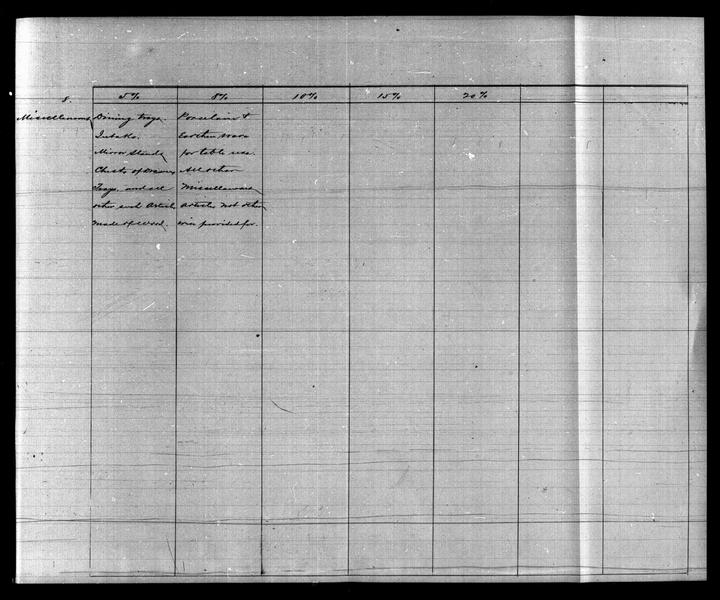 8. 5% 8% 10% 15% 20%
Miscellaneous
Dining trays.
Mirror Stands
Chests of Drawers
Trays and all
other such Articles
made of wood.
Porcelain &
Earthen ware
for table use.
All other
Miscellaneous
articles not other
wise provided for.